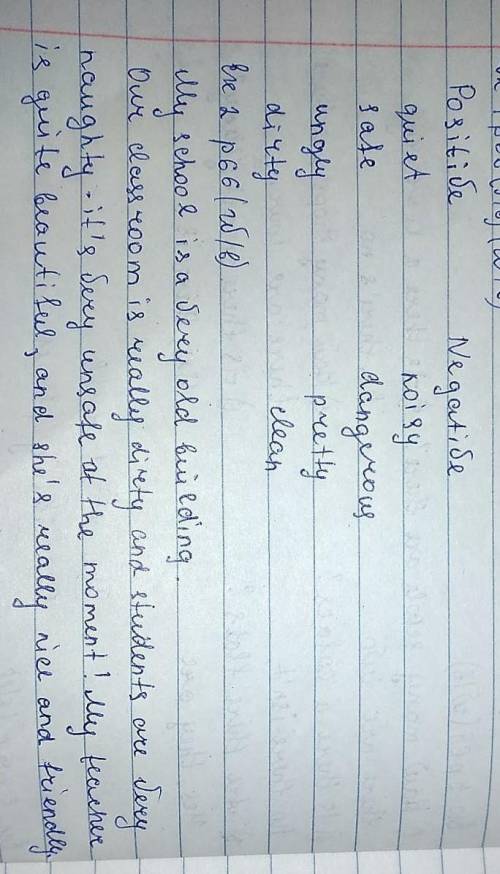 Positive Negative
quiet noisy
safe dangerous
ungly pretty
dirty clean
Ex 2 p66 (W/B)
My school is a very old building.
Our classroom is really dirty and students are very
naughty. it's very unsafe at the moment! My teacher
is quite beautiful, and she's really nice and friendly.